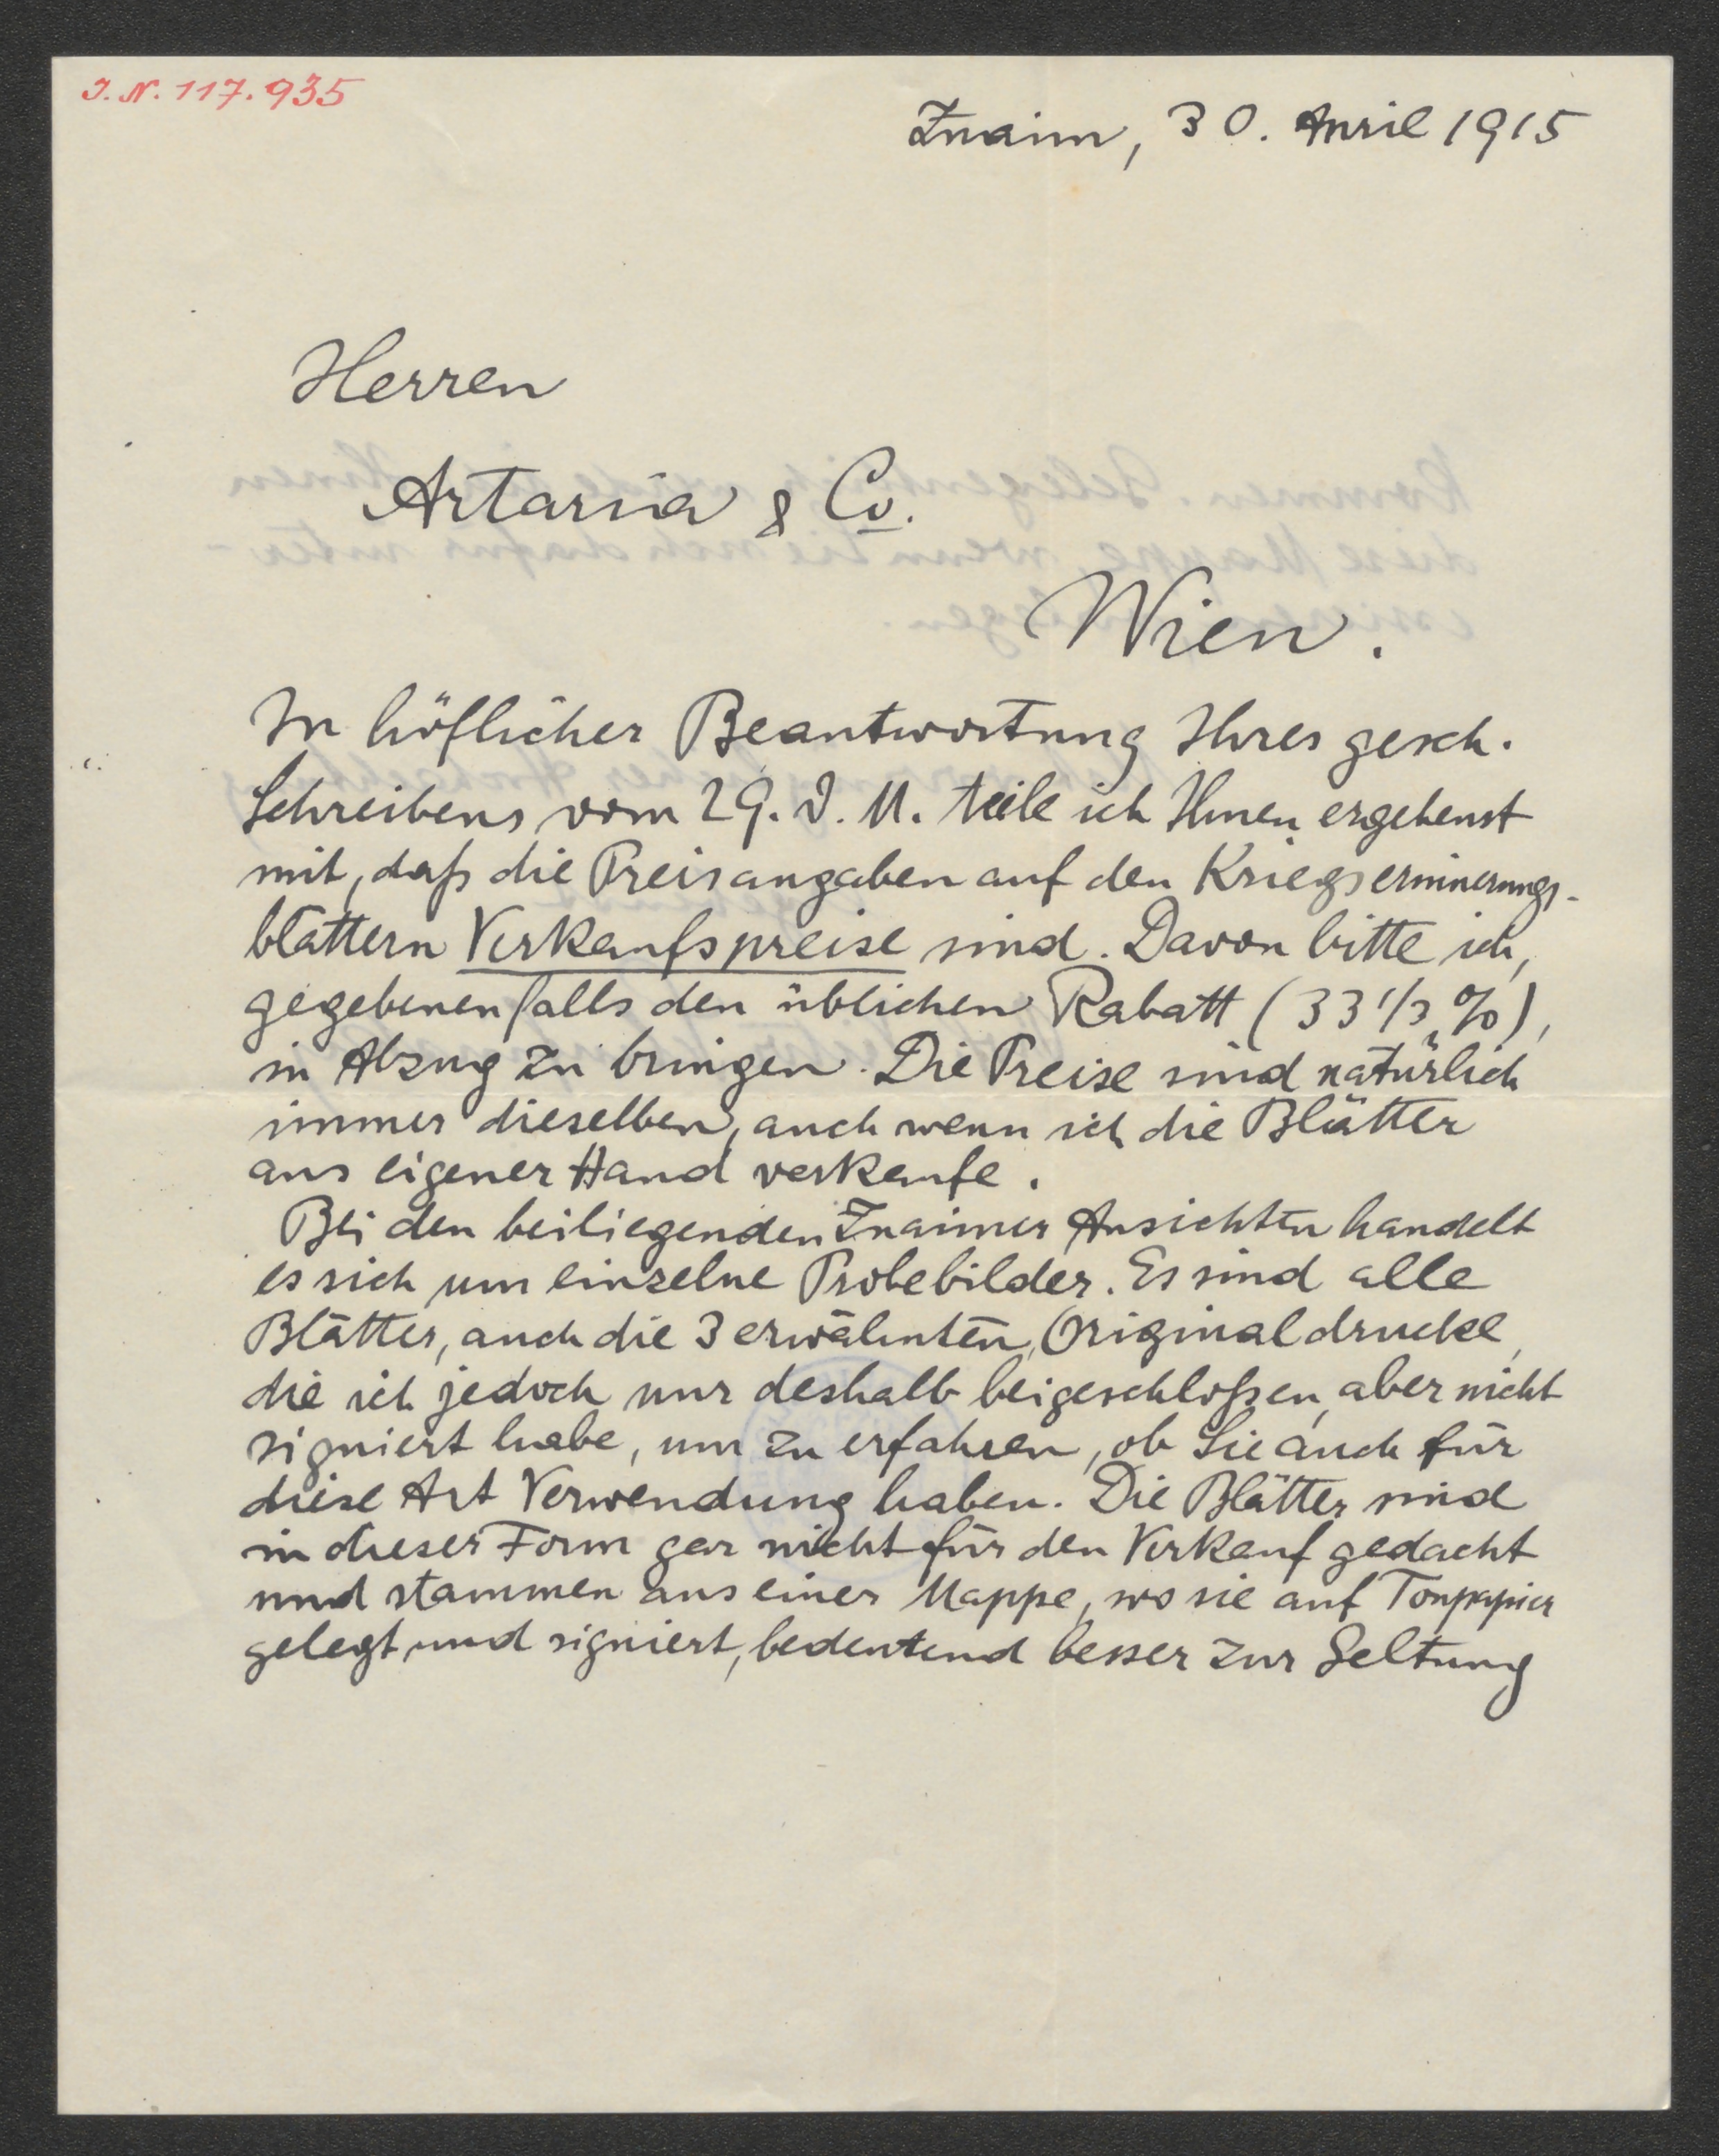 J. N. 117.935
Znaim, 30. April 1915
Herren
Artaria & Co.
Wien.
In höflicher Beantwortung Ihres gesch.
Schreibens vom 29. d. M. teile ich Ihnen ergebenst
mit, daß die Preisangaben auf den Kriegserinnerungs-
blättern Verkaufspreise sind. Davon bitte ich,
gegebenenfalls den üblichen Rabatt (33 1/3 %),
in Abzug zu bringen. Die Preise sind natürlich
immer dieselben, auch wenn ich die Blätter
aus eigener Hand verkaufe.
Bei den beiliegenden Znaimer Ansichten handelt
es sich um einzelne Probebilder. Es sind alle
Blätter, auch die 3 erwähnten, Originaldrucke,
die ich jedoch nur deshalb beigeschloßen, aber nicht
signiert habe, um zu erfahren, ob Sie auch für
diese Art Verwendung haben. Die Blätter sind
in dieser Form gar nicht für den Verkauf gedacht
und stammen aus einer Mappe, wo sie auf Tonpapier
gelegt und signiert, bedeutend besser zur Geltung